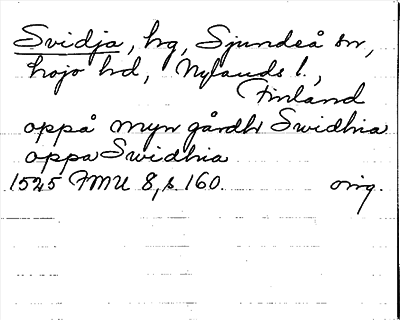 Svidja, hg, Sjundeå sn,
Lojo hd, Nylands l.,
Finland
oppå myn gårdh Swidhia
oppa Swidhia
1525 FMU 8, s. 160. orig.